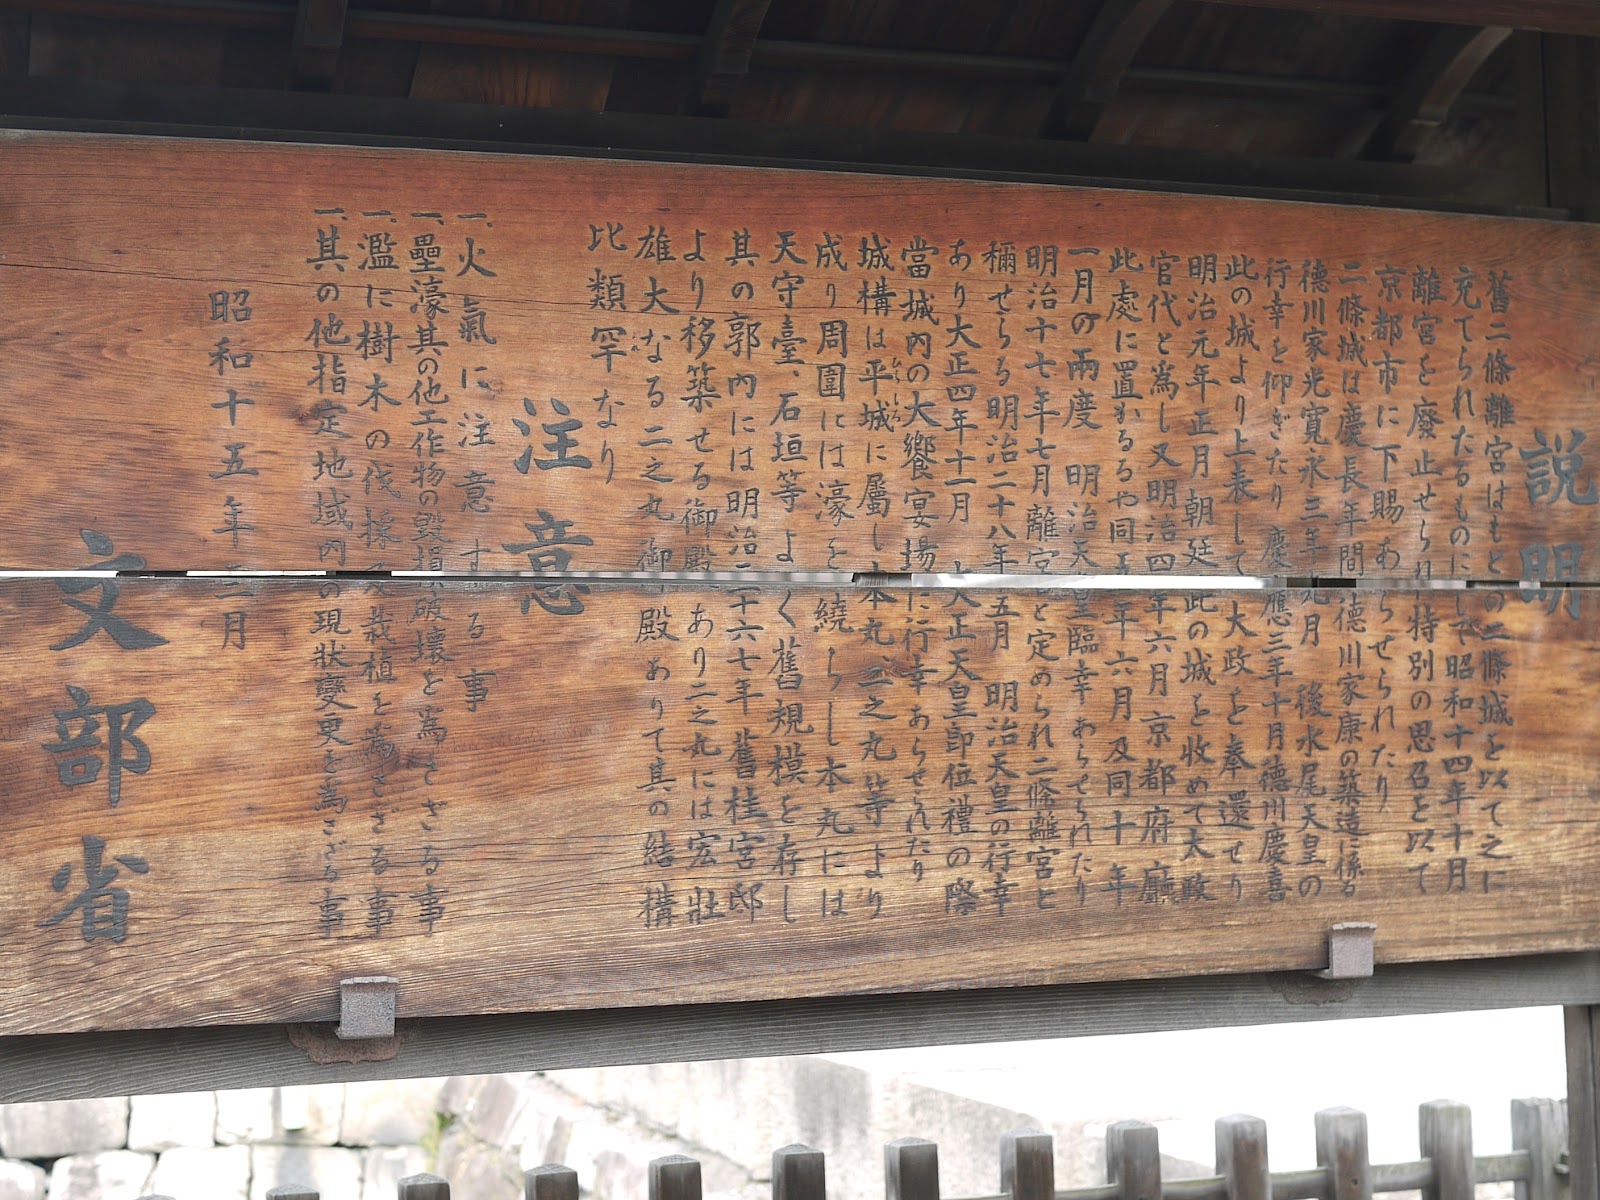 説明
舊二條離宮はもとの二條城を以て之に
充てられたるものにして昭和十四年十月
離宮を廢止せられ特別の思召を以て
京都市に下賜あらせられたり
二條城は慶長年間德川家康の築造に係る
德川家光寛永三年九月 後水尾天皇の
行幸を仰ぎたり慶應三年十月德川慶喜
此の城より上表して大政を奉還せり
明治元年正月朝廷此の城を收めて太政
官代と爲し又明治四年六月京都府廳
此處に置かるるや同五年六月及同十年
一月の兩度 明治天皇臨幸あらせられたり
明治十七年七月離宮と定められ二條離宮と
稱せらる明治二十八年五月 明治天皇の行幸
あり大正四年十一月 大正天皇即位禮の際
當城內の大饗宴場に行幸あらせられたり
城構は平城に屬し本丸、二之丸等より
成り周圍には濠を繞らし本丸には
天守臺、石垣等よく舊規模を存し
其の郭內には明治二十六七年舊桂宮邸
より移築せる御殿あり二之丸には宏壯
雄大なる二之丸御殿ありて其の結構
比類罕なり
注意
一、火氣に注意する事
一、壘濠其の他工作物の毀損破壞を爲さざる事
一、濫に樹木の伐採及栽植を爲さざる事
一、其の他指定地域內の現狀變更を爲さざる事
昭和十五年三月
文部省